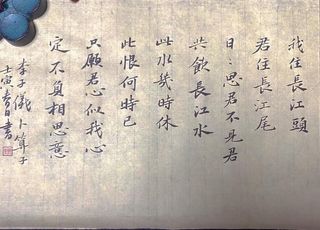 我住長江頭
君住長江尾
日:思君不見君
共飲長江水
此水幾時休
此恨何時已
只願君心似我心
定不負相思意
李子儀卜算子
壬寅春日書